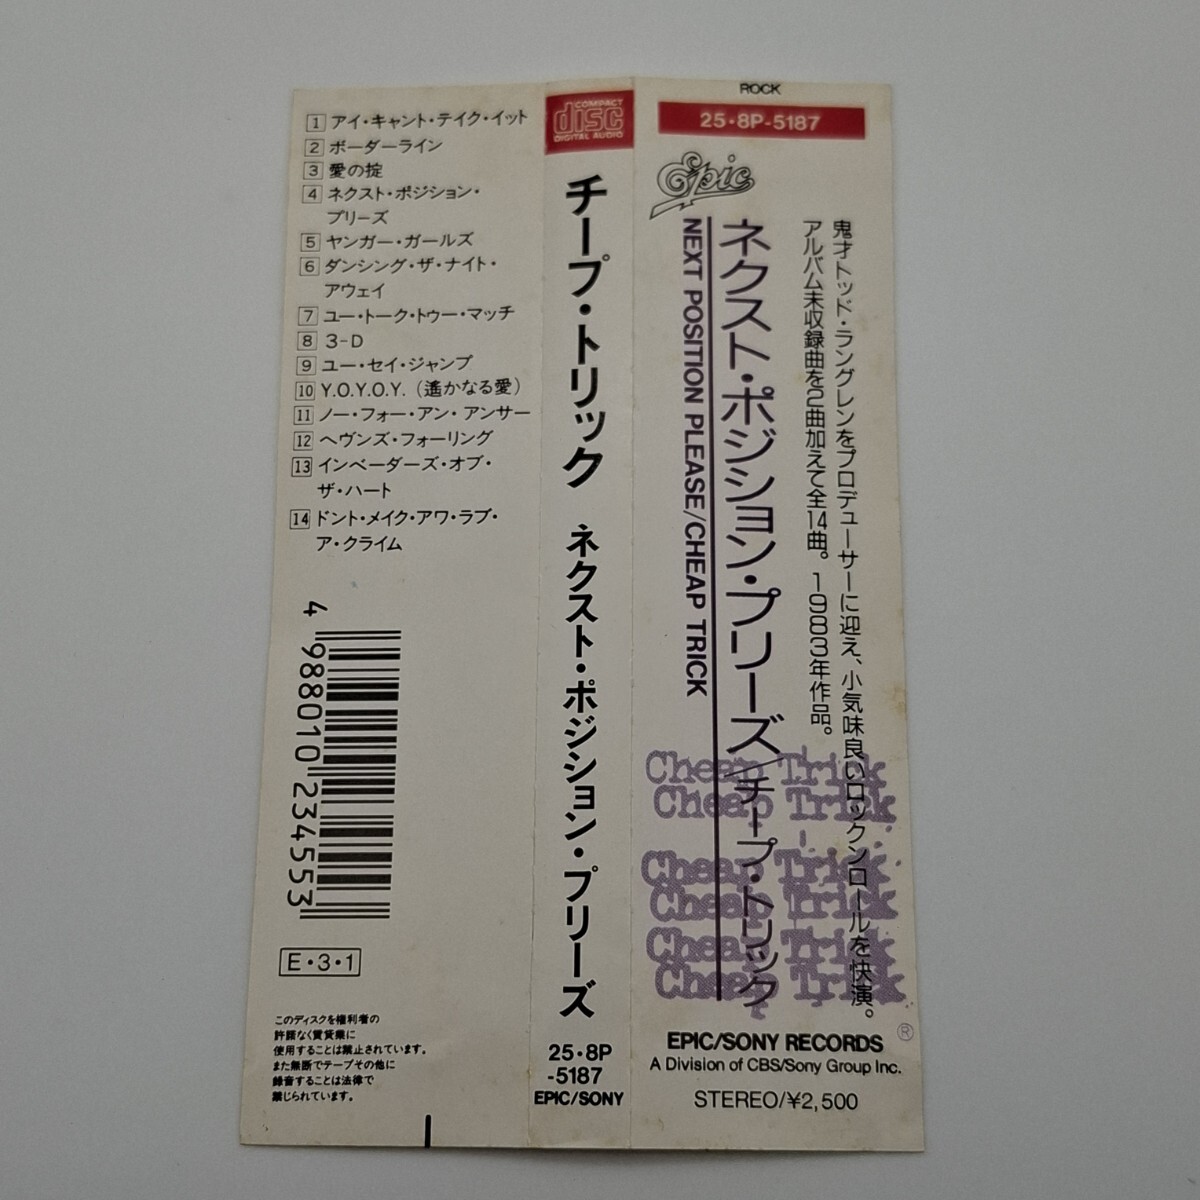 1 アイ・キャント・テイク・イット
2 ボーダーライン
3 愛の掟
4 ネクスト・ポジション・
プリーズ
5 ヤンガー・ガールズ
6 ダンシング・ザ・ナイト・
アウェイ
7 ユー・トーク・トゥー・マッチ
8 3-D
9 ユー・セイ・ジャンプ
10 Y.O.Y.O.Y.（遙かなる愛）
11 ノー・フォー・アン・アンサー
12 ヘヴンズ・フォーリング
13 インベーダーズ・オブ・
ザ・ハート
14 ドント・メイク・アワ・ラブ・
ア・クライム
4 988010 234553
E・3・1
このディスクを権利者の
許諾なく賃貸業に
使用することは禁止されています。
また無断でテープその他に
録音することは法律で
禁じられています。
COMPACT
disc
DIGITAL AUDIO
チープ・トリック ネクスト・ポジション・プリーズ
25・8P
-5187
EPIC/SONY
ROCK
25・8P-5187
Epic
鬼才トッド・ラングレンをプロデューサーに迎え、小気味良いロックンロールを快演。
アルバム未収録曲を2曲加えて全14曲。1983年作品。
ネクスト・ポジション・プリーズ/チープ・トリック
NEXT POSITION PLEASE/CHEAP TRICK
Cheap Trick
Cheap Trick
Cheap Trick
Cheap Trick
Cheap Trick
Cheap Trick
®
EPIC/SONY RECORDS
A Division of CBS/Sony Group Inc.
STEREO/¥2,500